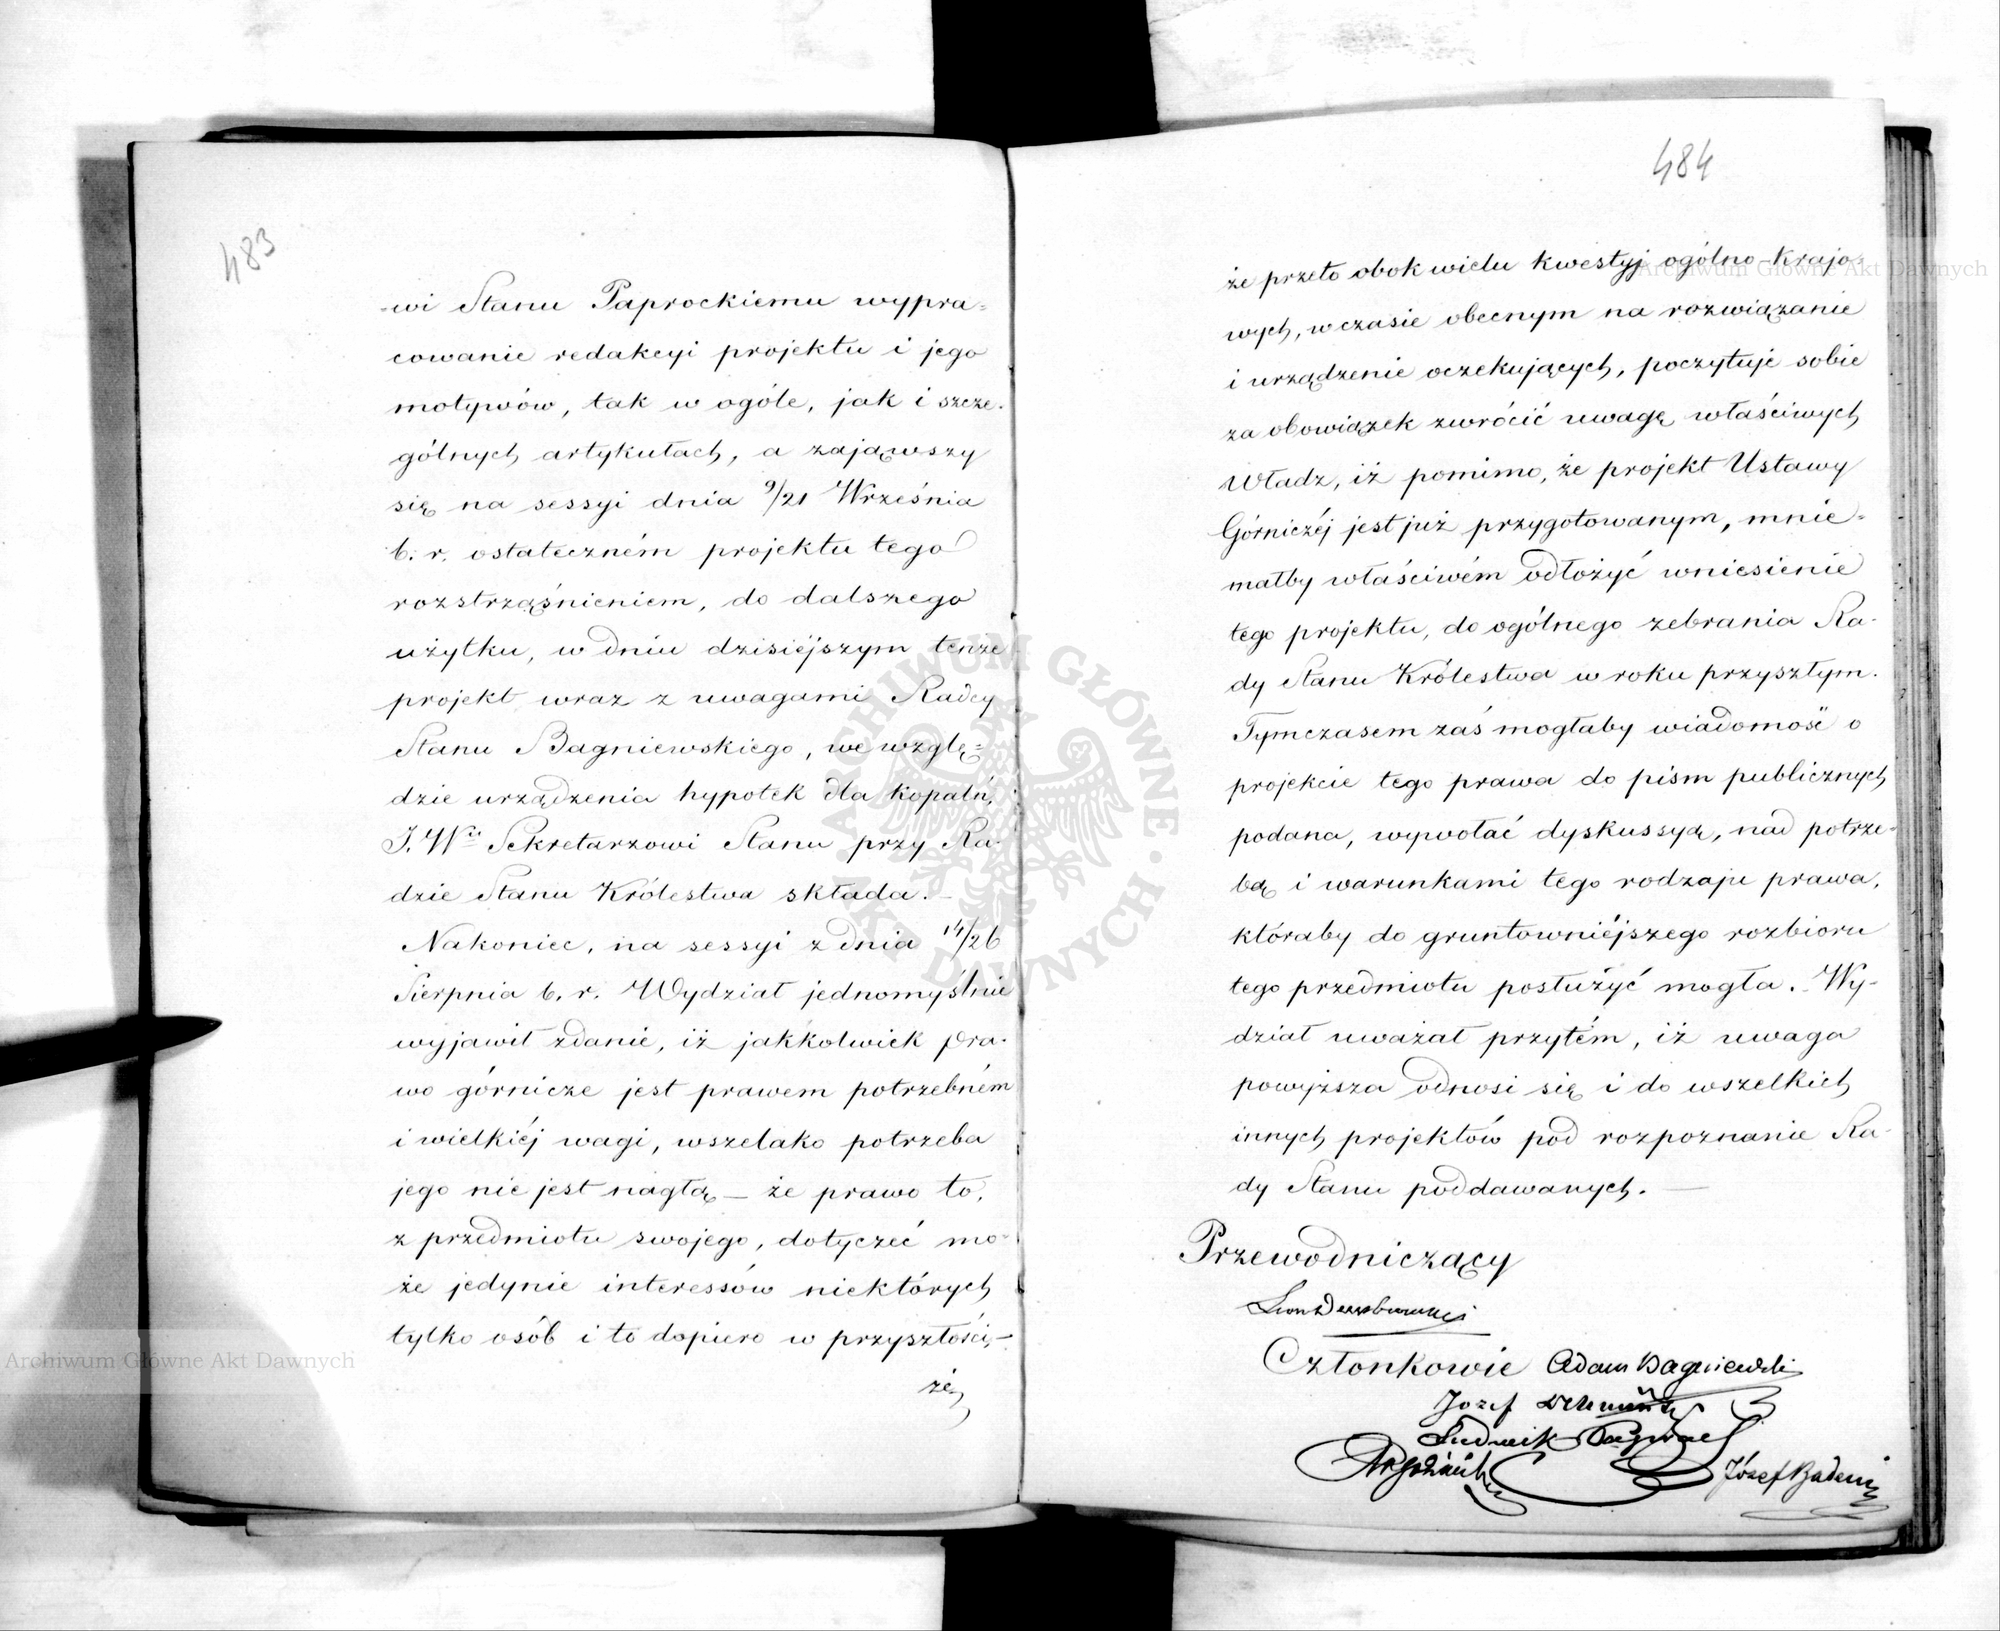 483
-wi Stanu Paprockiemu wypra=
cowanie redakcyi projektu i jego
motywów, tak w ogóle, jak i szcze-
gólnych artykułach, a zająwszy
się na sessyi dnia 9/21 Września
b. r. ostateczném projektu tego
rozstrząśnieniem, do dalszego
użytku, w dniu dzisiéjszym tenże
projekt wraz z uwagami Radcy
Stanu Bagniewskiego, we wzglę=
dzie urządzenia hypotek dla kopalń,
J. W. Sekretarzowi Stanu przy Ra-
dzie Stanu Królestwa składa.—
Nakoniec, na sessyi z dnia 14/26
Sierpnia b. r. Wydział jednomyślnie
wyjawił zdanie, iż jakkolwiek pra-
wo górnicze jest prawem potrzebném
i wielkiéj wagi, wszelako potrzeba
jego nie jest nagłą — że prawo to,
z przedmiotu swojego, dotyczeć mo-
że jedynie interessów niektórych
tylko osób i to dopiero w przyszłości,—
że
484
że przeto obok wielu kwestyj ogólno-krajo-
wych, w czasie obecnym na rozwiązanie
i urządzenie oczekujących, poczytuje sobie
za obowiązek zwrócić uwagę właściwych
Władz, iż pomimo, że projekt Ustawy
Górniczéj jest już przygotowanym, mnie-
małby właściwém odłożyć wniesienie
tego projektu, do ogólnego zebrania Ra-
dy Stanu Królestwa w roku przyszłym.
Tymczasem zaś mogłaby wiadomość o
projekcie tego prawa do pism publicznych
podana, wywołać dyskussyą, nad potrze-
bą i warunkami tego rodzaju prawa,
któraby do gruntowniéjszego rozbioru
tego przedmiotu posłużyć mogła. — Wy-
dział uważał przytém, iż uwaga
powyższa odnosi się i do wszelkich
innych projektów pod rozpoznanie Ra-
dy Stanu poddawanych. —
Przewodniczący
Leon Dembowski
Członkowie Adam Bagniewski
Józef
Ludwik
Józef Badeni
Archiwum Główne Akt Dawnych
Archiwum Główne Akt Dawnych
ARCHIWUM GŁÓWNE AKT DAWNYCH